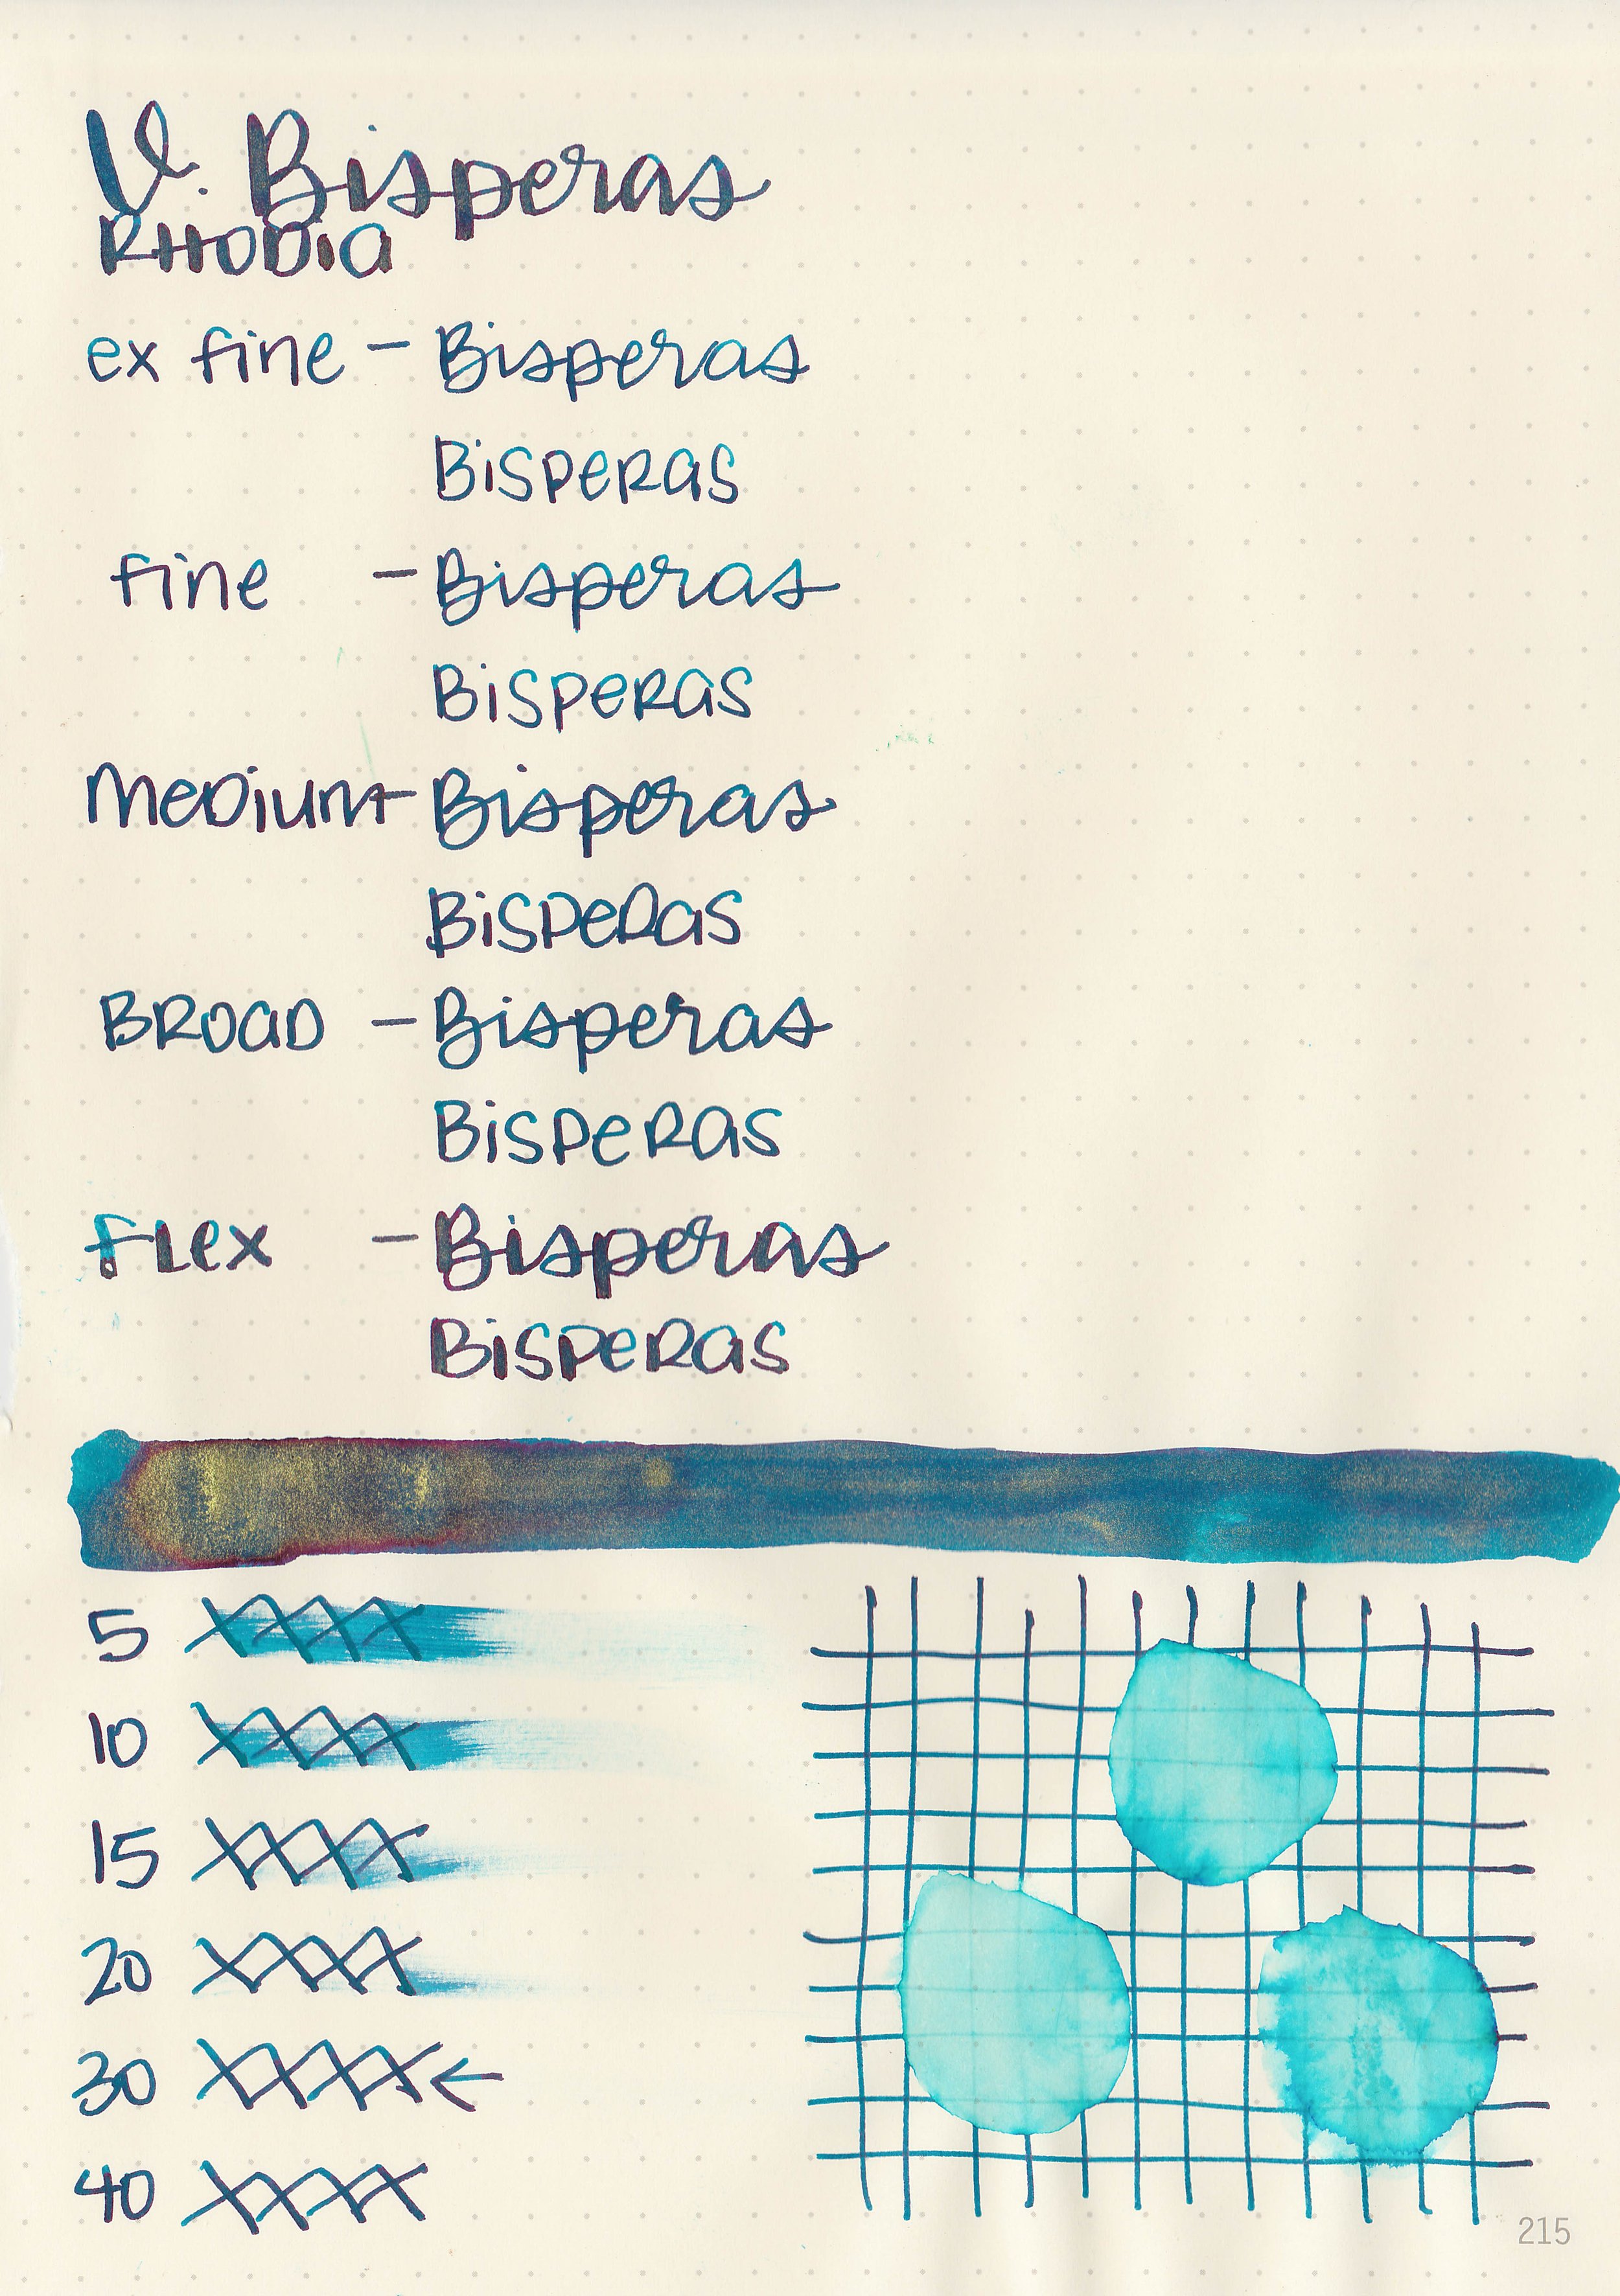 V. Bisperas
RHODIA
ex fine - Bisperas
Bisperas
fine - Bisperas
Bisperas
Medium - Bisperas
Bisperas
BROAD - Bisperas
Bisperas
Flex - Bisperas
Bisperas
5 XXXX
10 XXXX
15 XXXX
20 XXXX
30 XXXX ←
40 XXXX
215